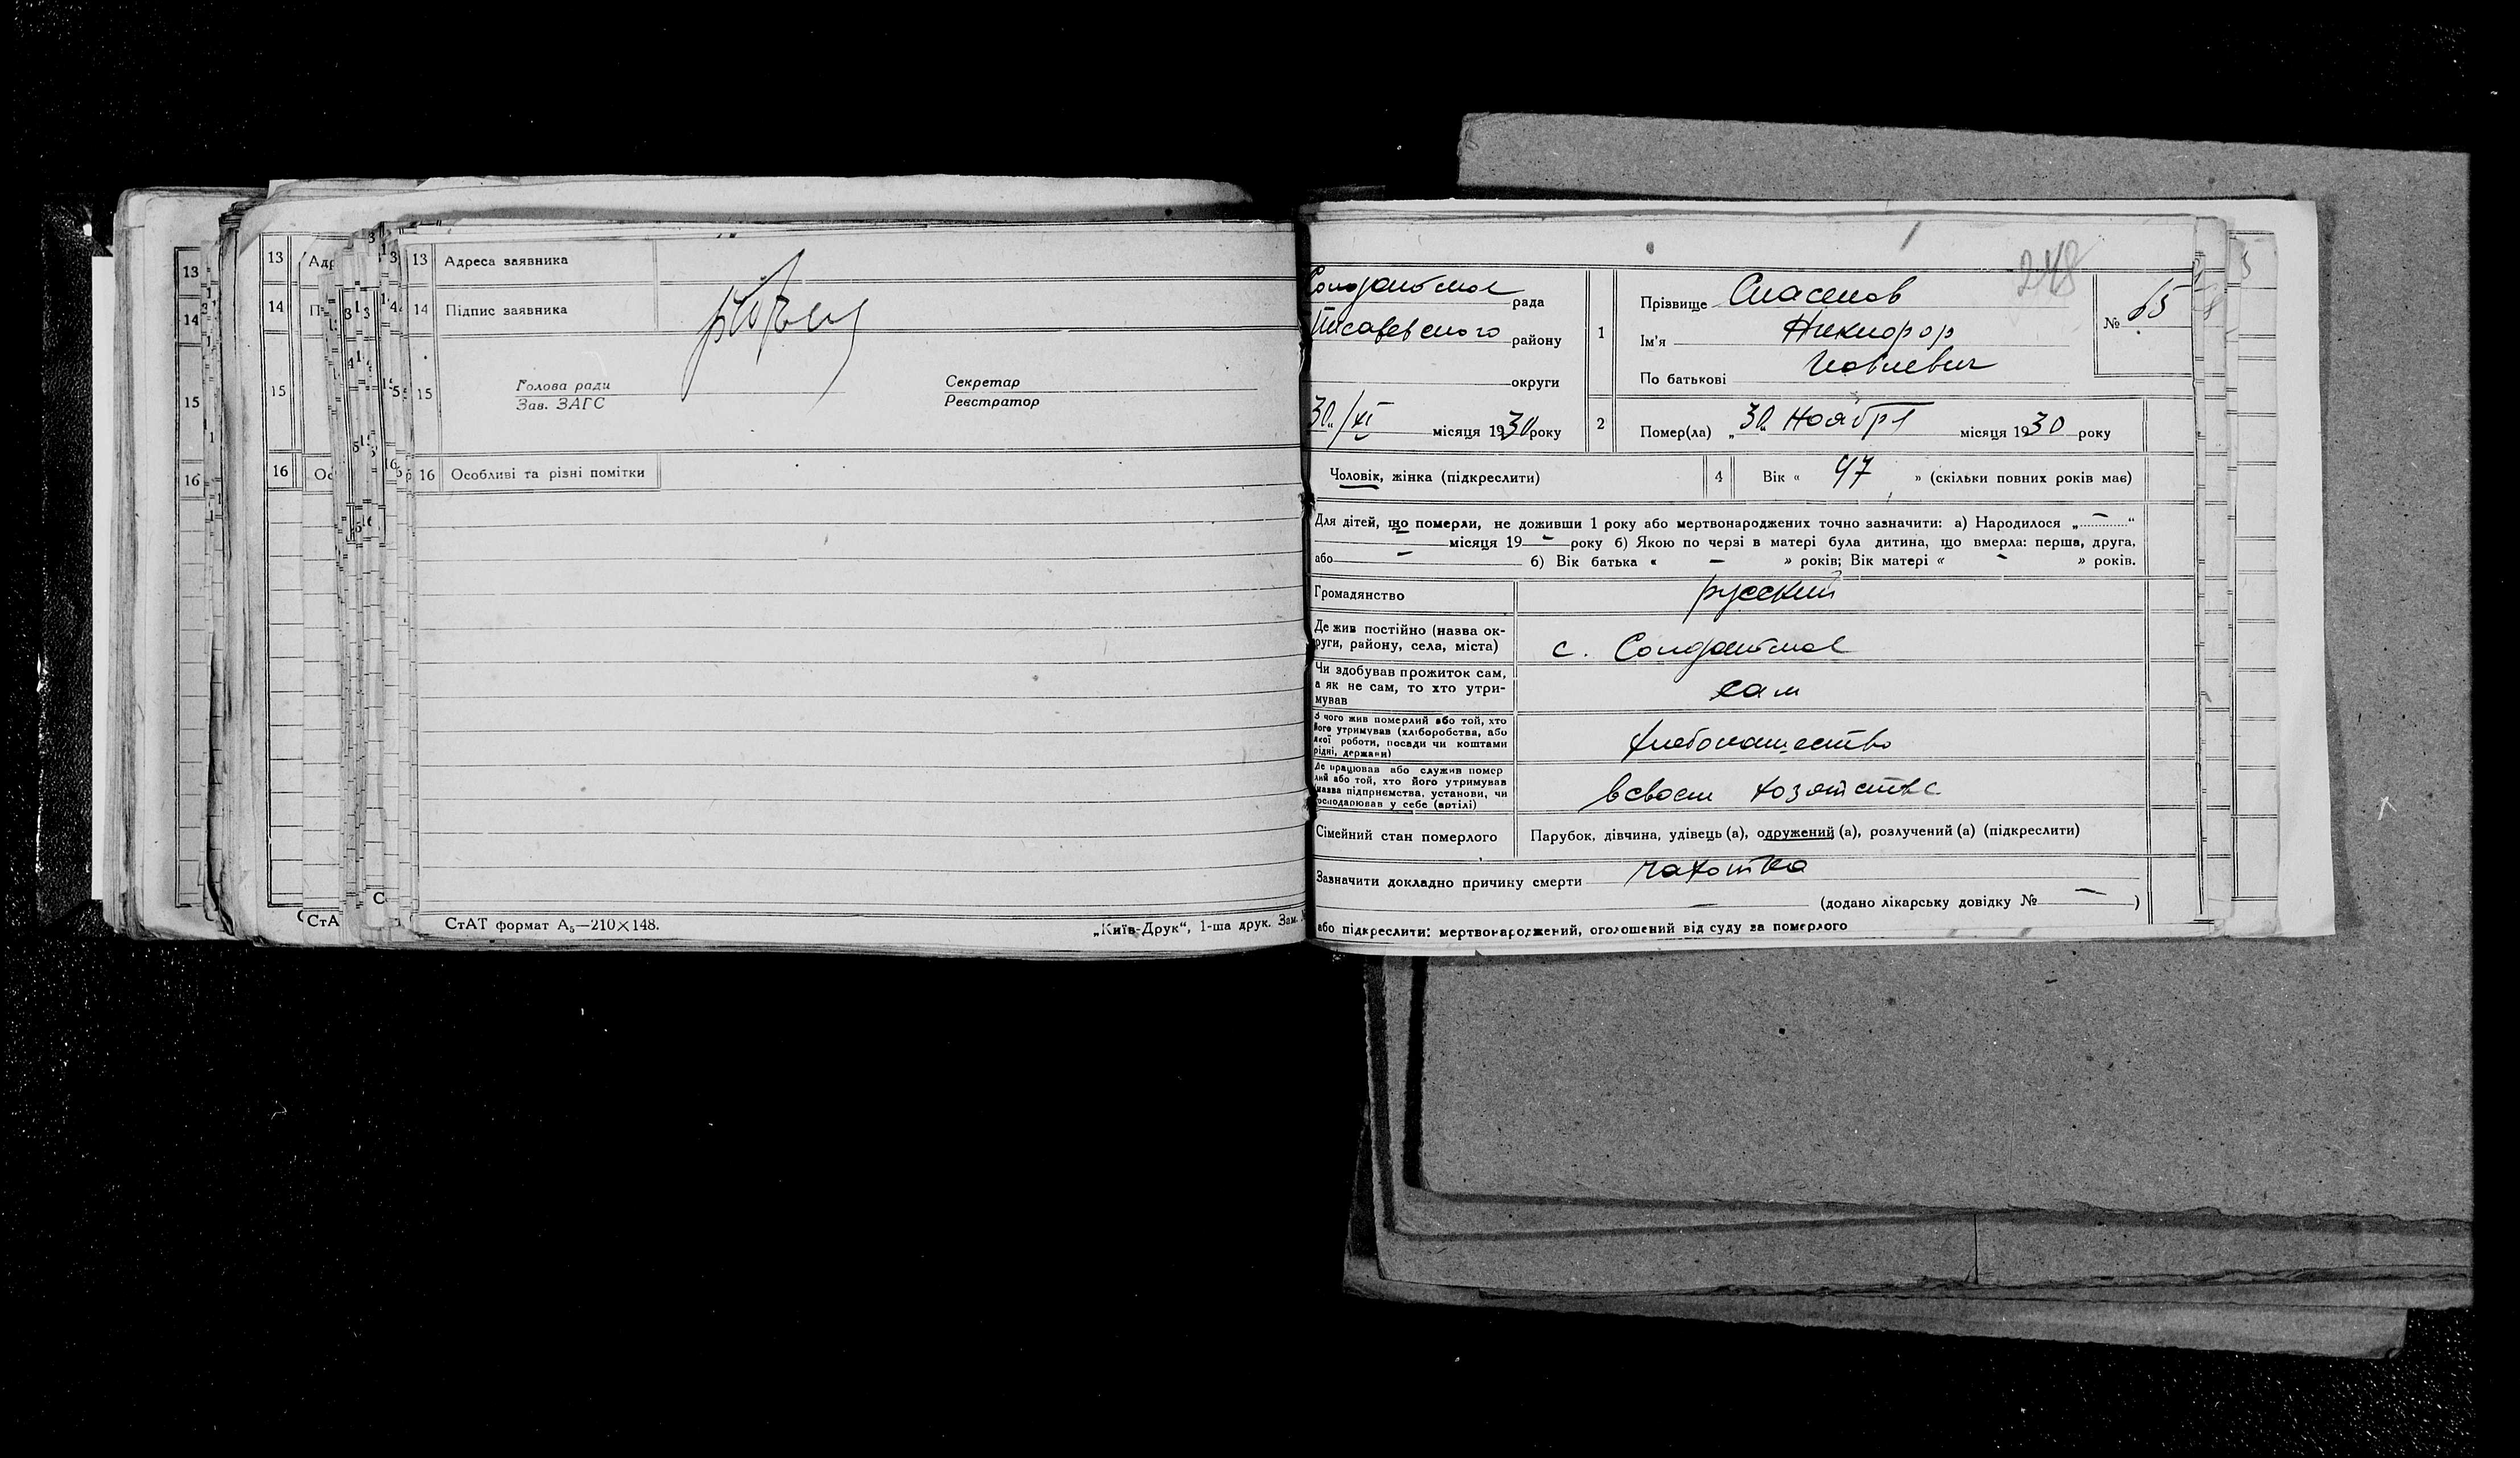 13 Адреса заявника
14 Підпис заявника
15 Голова ради
Зав. ЗАГС
Секретар
Реєстратор
16 Особливі та різні помітки
СтАТ формат А₅—210×148.
„Київ-Друк“, 1-ша друк. Зам.
248
Солдатское рада
района
району
округи
30/XI місяця 1930 року
1 Прізвище Спасенов
Ім'я Никифор
По батькові Иовлевич
№ 65
2 Помер(ла) „30“ Ноября місяця 1930 року
Чоловік, жінка (підкреслити)
4 Вік « 47 » (скільки повних років має)
Для дітей, що померли, не доживши 1 року або мертвонароджених точно зазначити: а) Народилося „ — “
місяця 19 — року б) Якою по черзі в матері була дитина, що вмерла: перша, друга,
або — б) Вік батька « — » років; Вік матері « — » років.
Громадянство русский
Де жив постійно (назва ок-
руги, району, села, міста) с. Солдатское
Чи здобував прожиток сам,
а як не сам, то хто утри-
мував сам
З чого жив померлий або той, хто
його утримував (хліборобства, або
якої роботи, посади чи коштами
рідні, держави) хлебопашество
Де працював або служив помер
лий або той, хто його утримував
назва підприємства, установи, чи
господарював у себе (артілі) в своем хозяйстве
Сімейний стан померлого Парубок, дівчина, удівець (а), одружений (а), розлучений (а) (підкреслити)
Зазначити докладно причину смерти чахотка
— (додано лікарську довідку № — )
або підкреслити: мертвонароджений, оголошений від суду за померлого